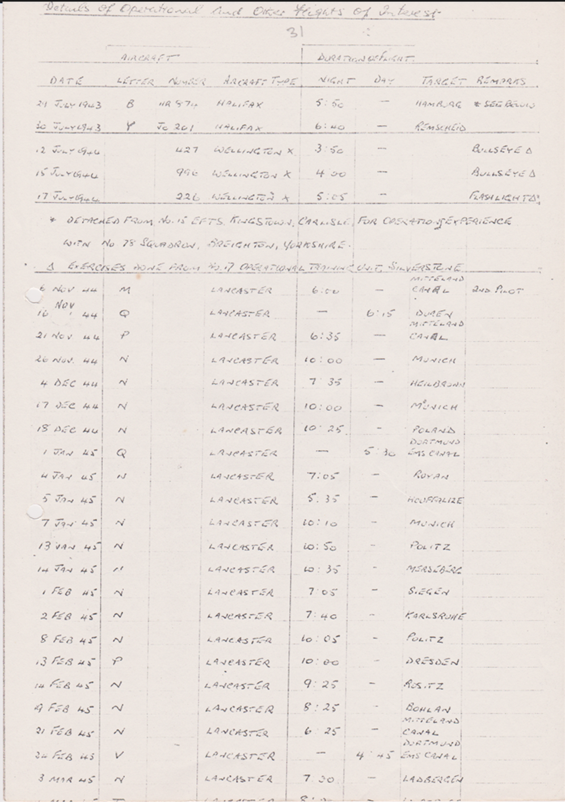 Details of Operational And Other Flights of Interest
31
AIRCRAFT DURATION OF FLIGHT
DATE LETTER NUMBER AIRCRAFT TYPE NIGHT DAY TARGET REMARKS
29 JULY 1943 B HR 874 HALIFAX 5:50 — HAMBURG
30 JULY 1943 Y JD 201 HALIFAX 6:40 — REMSCHEID
12 JULY 1944 427 WELLINGTON X 3:50 BULLSEYE Δ
15 JULY 1944 990 WELLINGTON X 4:00 BULLSEYE Δ
17 JULY 1944 226 WELLINGTON X 5:05 FLASHLIGHT Δ
* DETACHED FROM No. 15 EFTS, KINGSTOWN, CARLISLE, FOR OPERATIONAL EXPERIENCE
WITH No 78 SQUADRON, BREIGHTON, YORKSHIRE.
Δ EXERCISES DONE FROM No. 17 OPERATIONAL TRAINING UNIT, SILVERSTONE
MITTELAND
6 NOV 44 M LANCASTER 6:00 — CANAL 2ND PILOT
16 NOV 44 Q LANCASTER — 6:15 DUREN
MITTELAND
21 NOV 44 P LANCASTER 6:35 — CANAL
26 NOV. 44 N LANCASTER 10:00 — MUNICH
4 DEC 44 N LANCASTER 7 35 — HEILBRONN
17 DEC 44 N LANCASTER 10:00 — MUNICH
18 DEC 44 N LANCASTER 10:25 — POLAND
DORTMUND
1 JAN 45 Q LANCASTER — 5:30 EMS CANAL
4 JAN 45 N LANCASTER 7:05 — ROYAN
5 JAN 45 N LANCASTER 5:35 — HOUFFALIZE
7 JAN 45 N LANCASTER 10:10 — MUNICH
13 JAN 45 N LANCASTER 10:50 — POLITZ
14 JAN 45 N LANCASTER 10:35 — MERSEBERG
1 FEB 45 N LANCASTER 7:05 — SIEGEN
2 FEB 45 N LANCASTER 7:40 — KARLSRUHE
8 FEB 45 N LANCASTER 10:05 — POLITZ
13 FEB 45 P LANCASTER 10:00 — DRESDEN
14 FEB 45 N LANCASTER 9:25 — ROSITZ
9 FEB 45 N LANCASTER 8:25 — BOHLAN
MITTELAND
21 FEB 45 N LANCASTER 6 25 — CANAL
DORTMUND
24 FEB 45 V LANCASTER — 4:45 EMS CANAL
3 MAR 45 N LANCASTER 7 30 — LADBERGEN